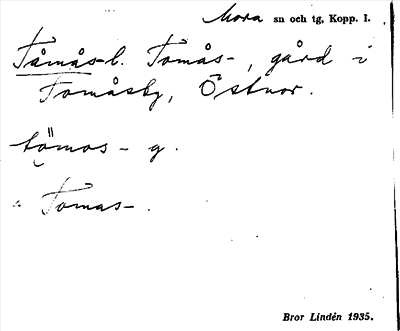 Mora sn och tg, Kopp. l.
Tåmås-l. Tomås-, gård i
Tomåsby, Östnor.
tömos- g.
Tomas-.
Bror Lindén 1935.